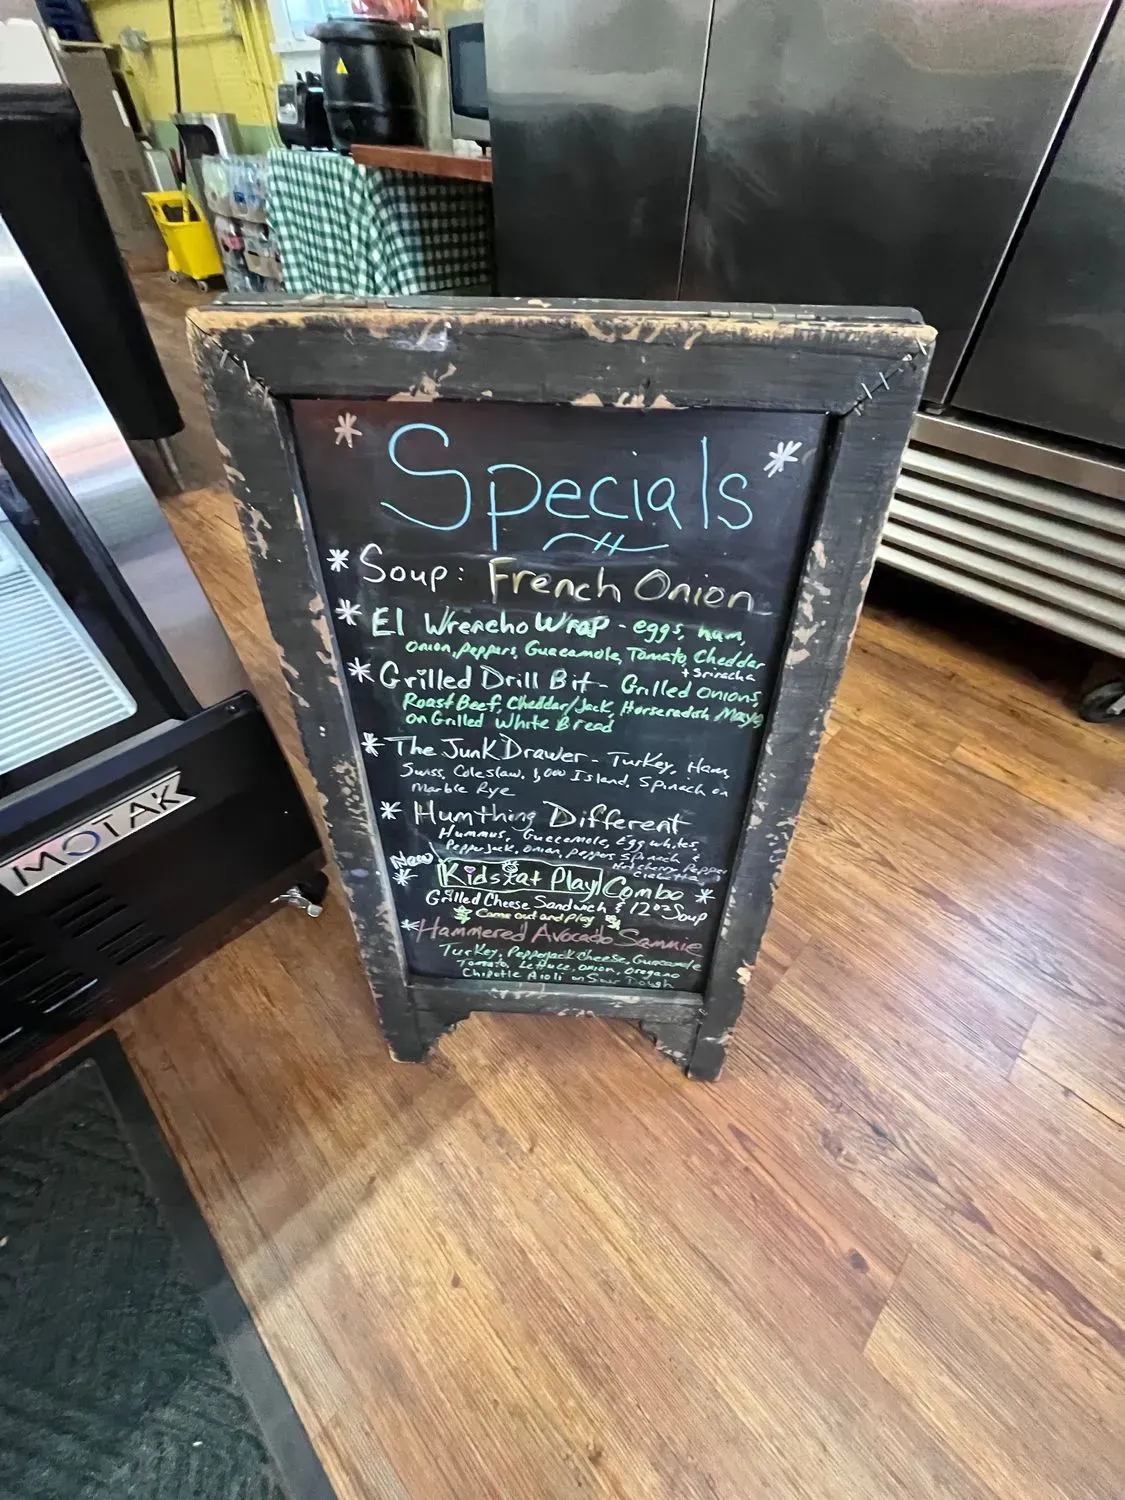 * Specials *
* Soup: French Onion
* El Wrencho Wrap - eggs, ham,
Onion, Peppers, Guacamole, Tomato, Cheddar
+ Sriracha
* Grilled Drill Bit - Grilled Onions,
Roast Beef, Cheddar/Jack, Horseradish Mayo
on Grilled White Bread
* The Junk Drawer - Turkey, Ham,
Swiss, Coleslaw, 1,000 Island, Spinach on
Marble Rye
* Humthing Different
Hummus, Guacamole, Egg whites,
Pepperjack, onion, peppers spinach &
Hot cherry Pepper
New
* Kids at Play Combo *
Grilled Cheese Sandwich & 12oz Soup
Come out and play
* Hammered Avocado Sammie
Turkey, Pepperjack Cheese, Guacamole
Tomato, Lettuce, onion, oregano
Chipotle Aioli on Sour Dough
MOTAK